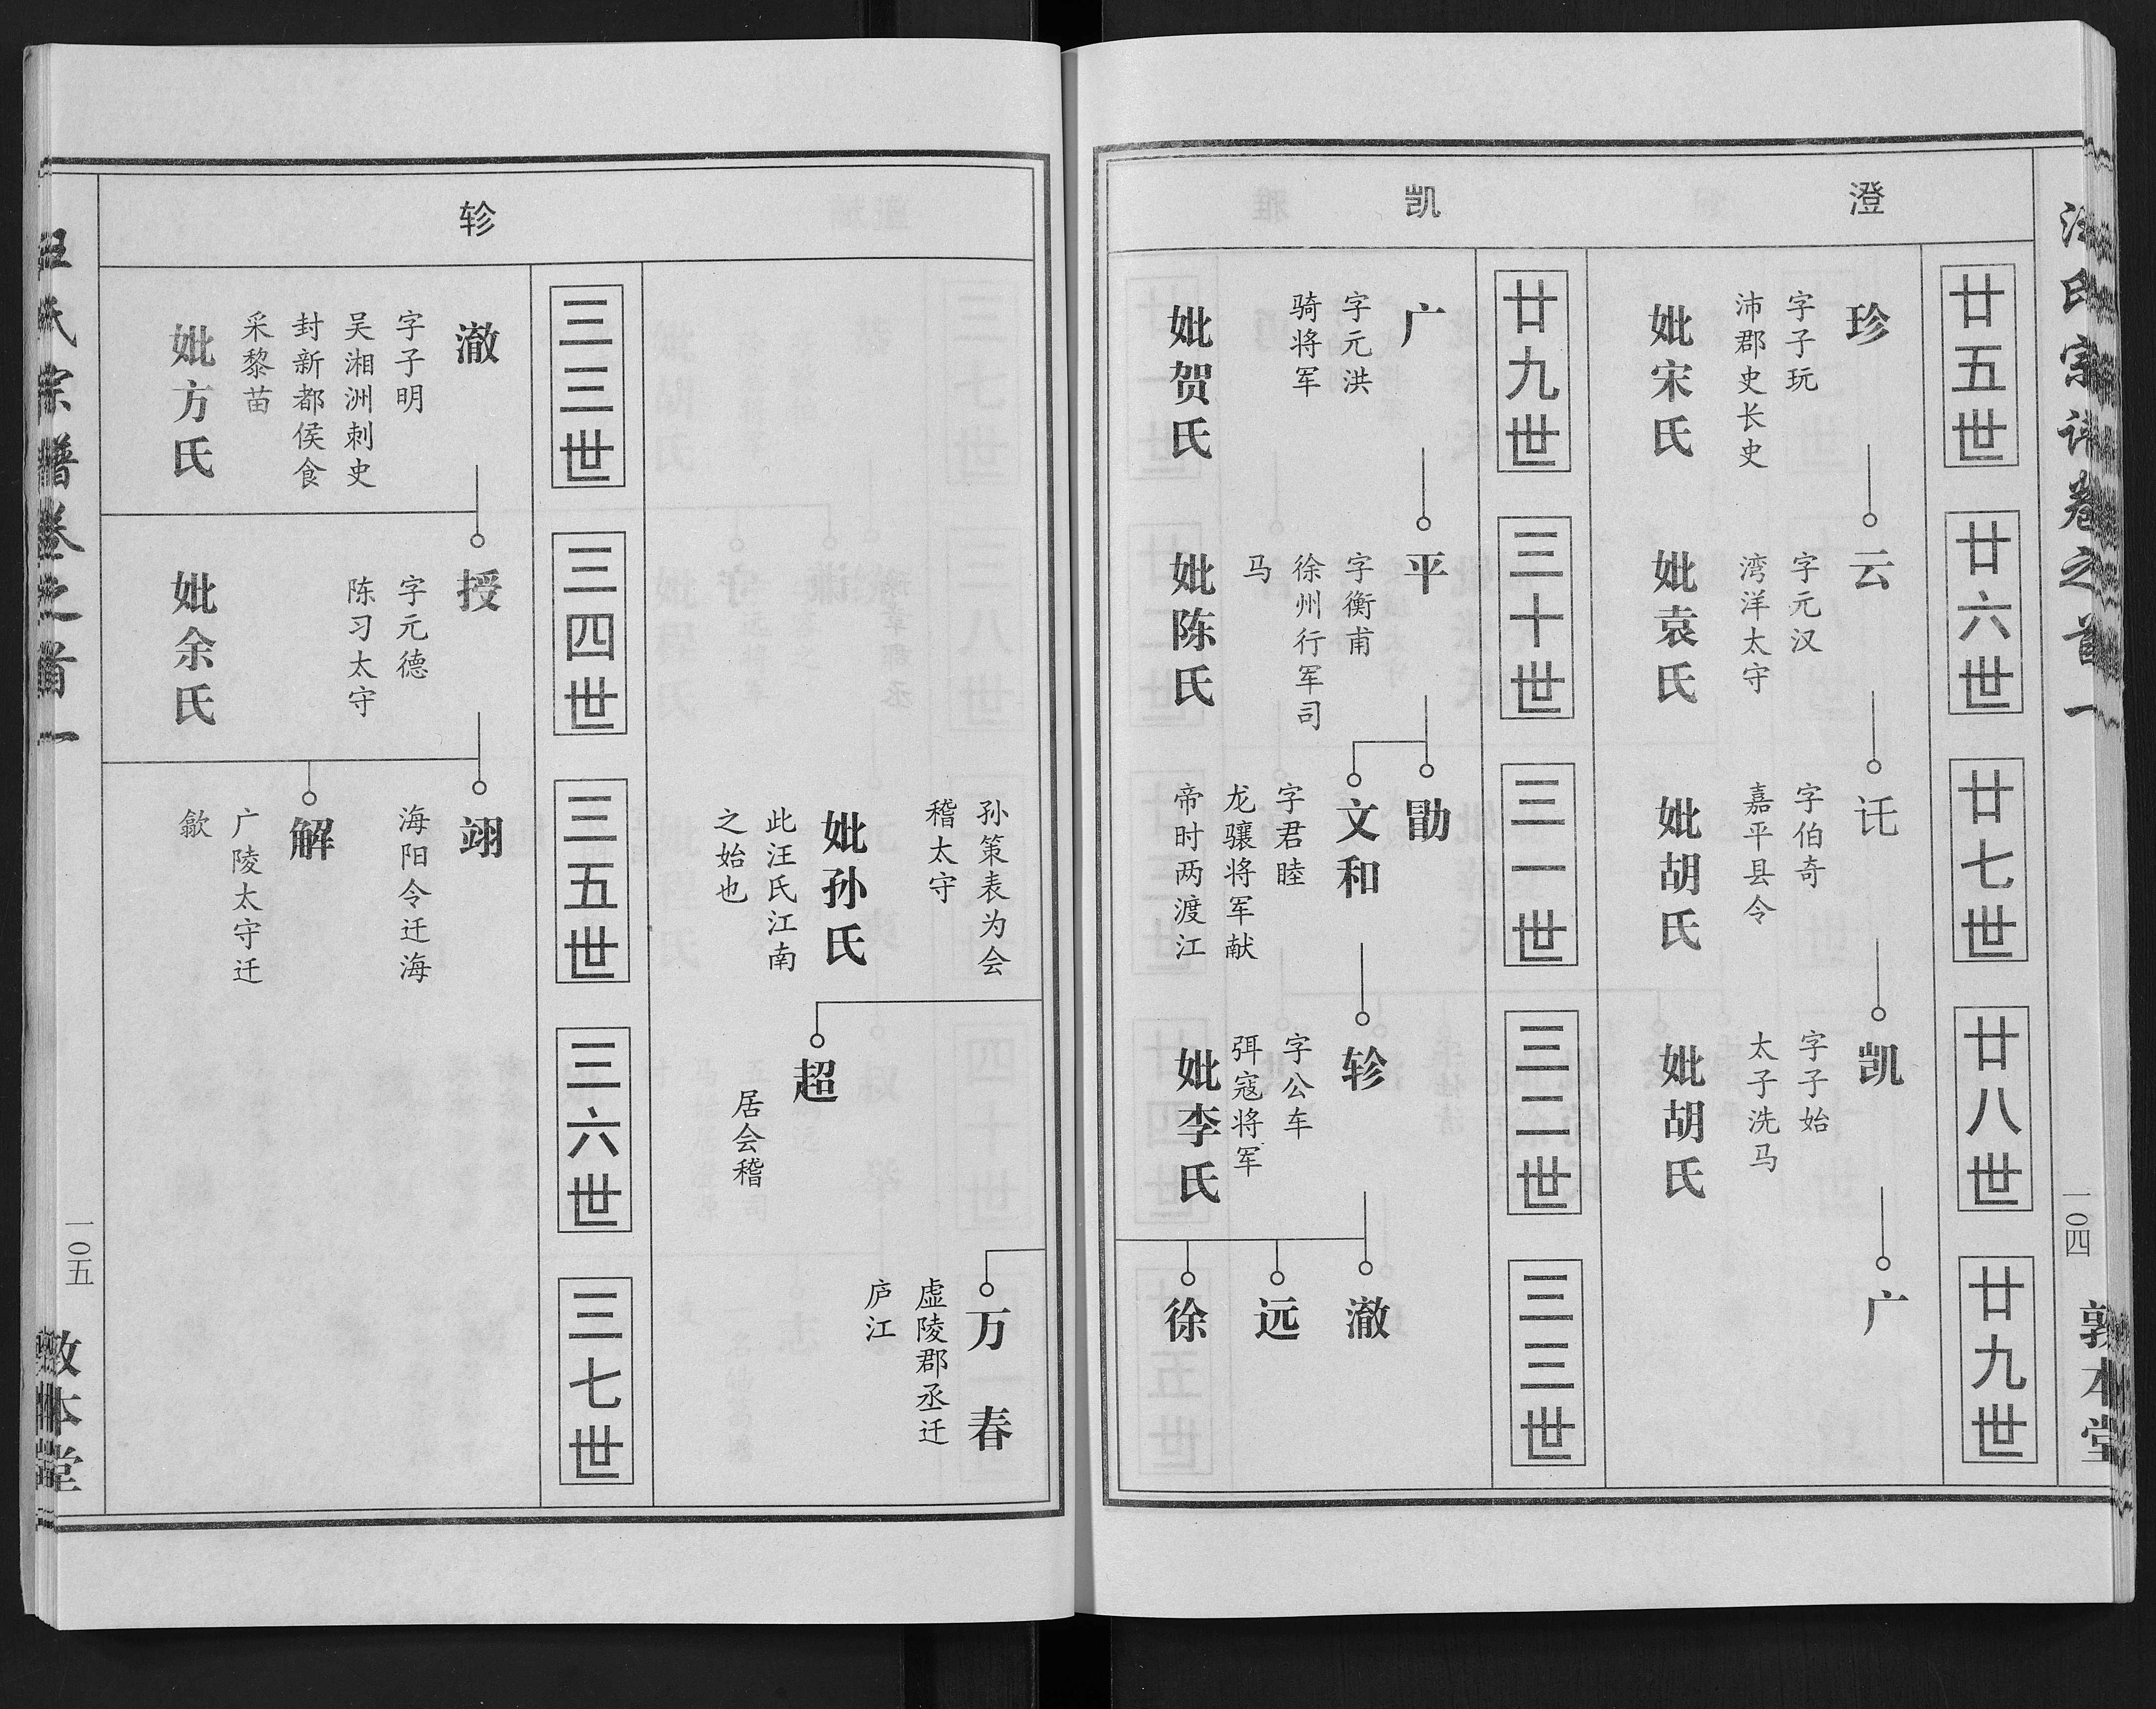 汪氏宗谱卷之首一
一〇四
敦本堂
澄
廿五世
珍
字子玩
沛郡史长史
妣宋氏
廿六世
云
字元汉
湾洋太守
妣袁氏
廿七世
讬
字伯奇
嘉平县令
妣胡氏
廿八世
凯
字子始
太子洗马
妣胡氏
廿九世
广
凯
廿九世
广
字元洪
骑将军
妣贺氏
三十世
平
字衡甫
徐州行军司
马
妣陈氏
三一世
勖
文和
字君睦
龙骧将军献
帝时两渡江
三二世
轸
字公车
弭寇将军
妣李氏
三三世
澈
远
徐
孙策表为会
稽太守
妣孙氏
此汪氏江南
之始也
超
居会稽
万春
虚陵郡丞迁
庐江
轸
三三世
澈
字子明
吴湘洲刺史
封新都侯食
采黎苗
妣方氏
三四世
授
字元德
陈习太守
妣余氏
三五世
翊
海阳令迁海
解
广陵太守迁
歙
三六世
三七世
汪氏宗谱卷之首一
一〇五
敦本堂